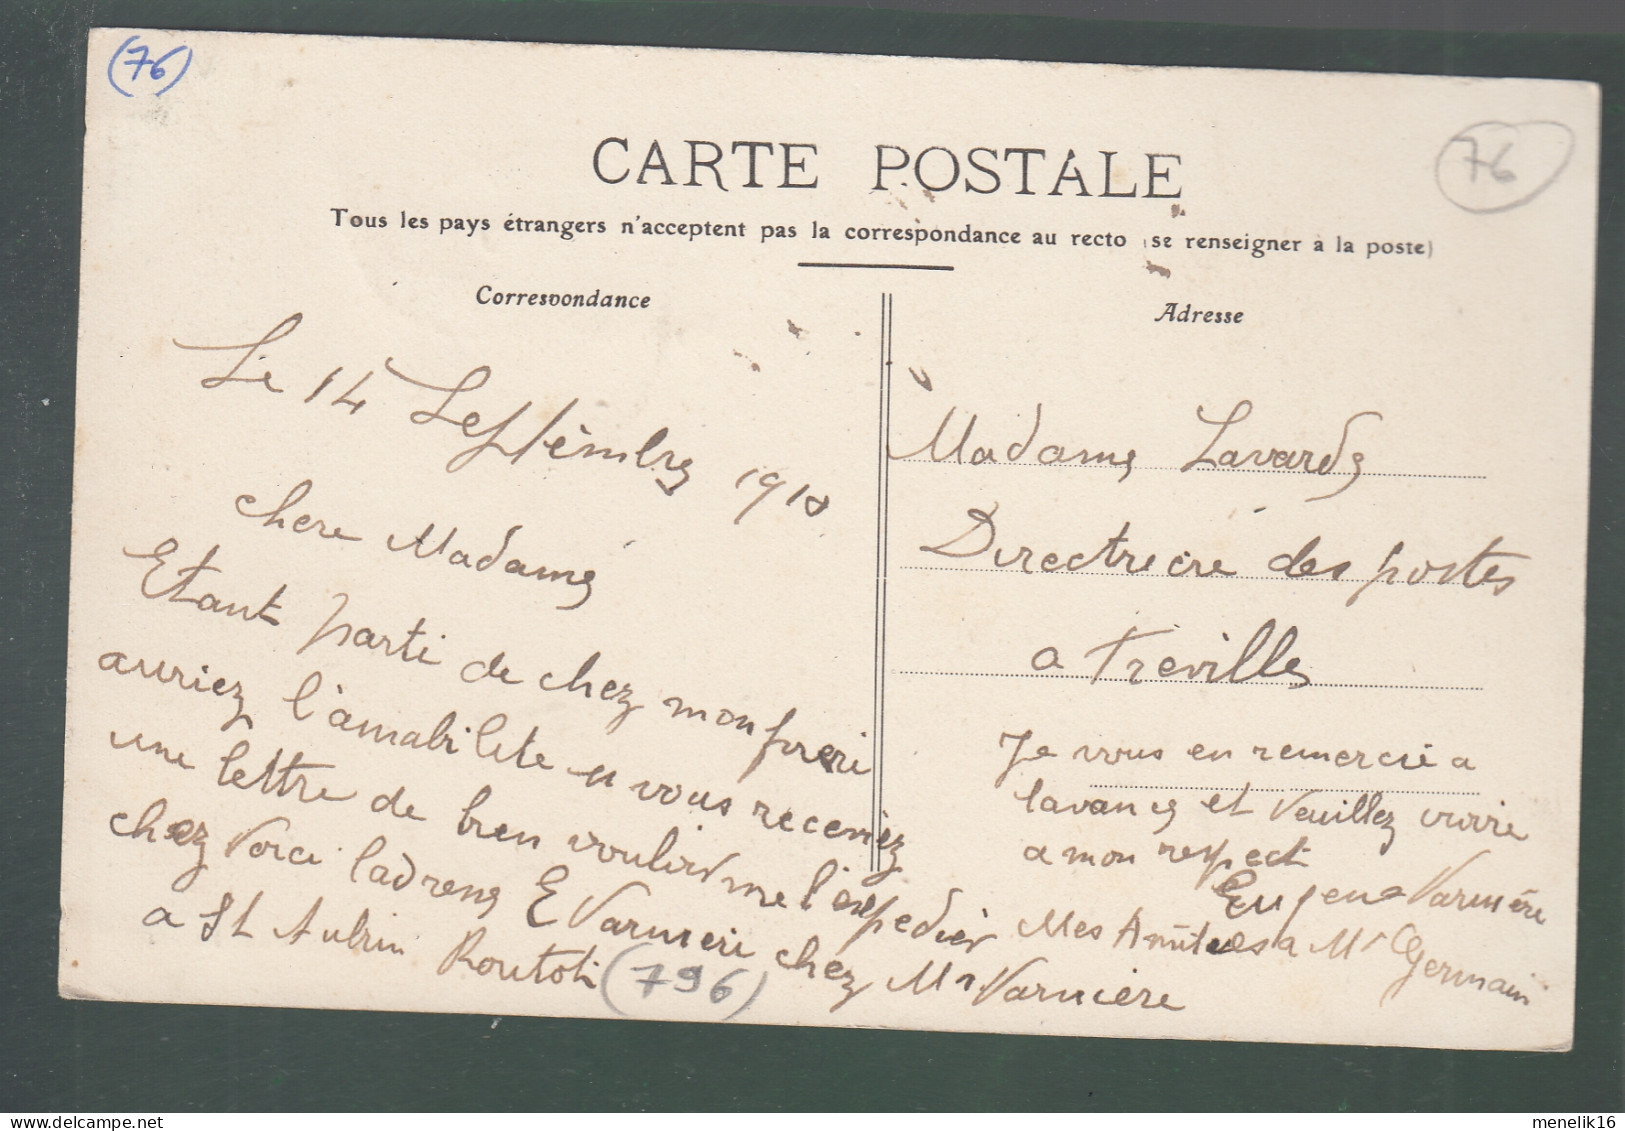 (76)
76
CARTE POSTALE
Tous les pays étrangers n'acceptent pas la correspondance au recto (se renseigner à la poste)
Correspondance
Le 14 Septembre 1910
chere Madame
Etant parti de chez mon frere
auriez l'amabilite vous receviez
une lettre de bien voulir me l'expedier
chez Voici ladrens E Varniere chez Mr Varniere
a St Aubin Routot (796)
Adresse
Madame Lavarde
Directreire des postes
a Treville
Je vous en remercie a
lavance et Veuillez croire
a mon respect
Eugene Varniere
Mes Amities a Mr Germain
menelik16